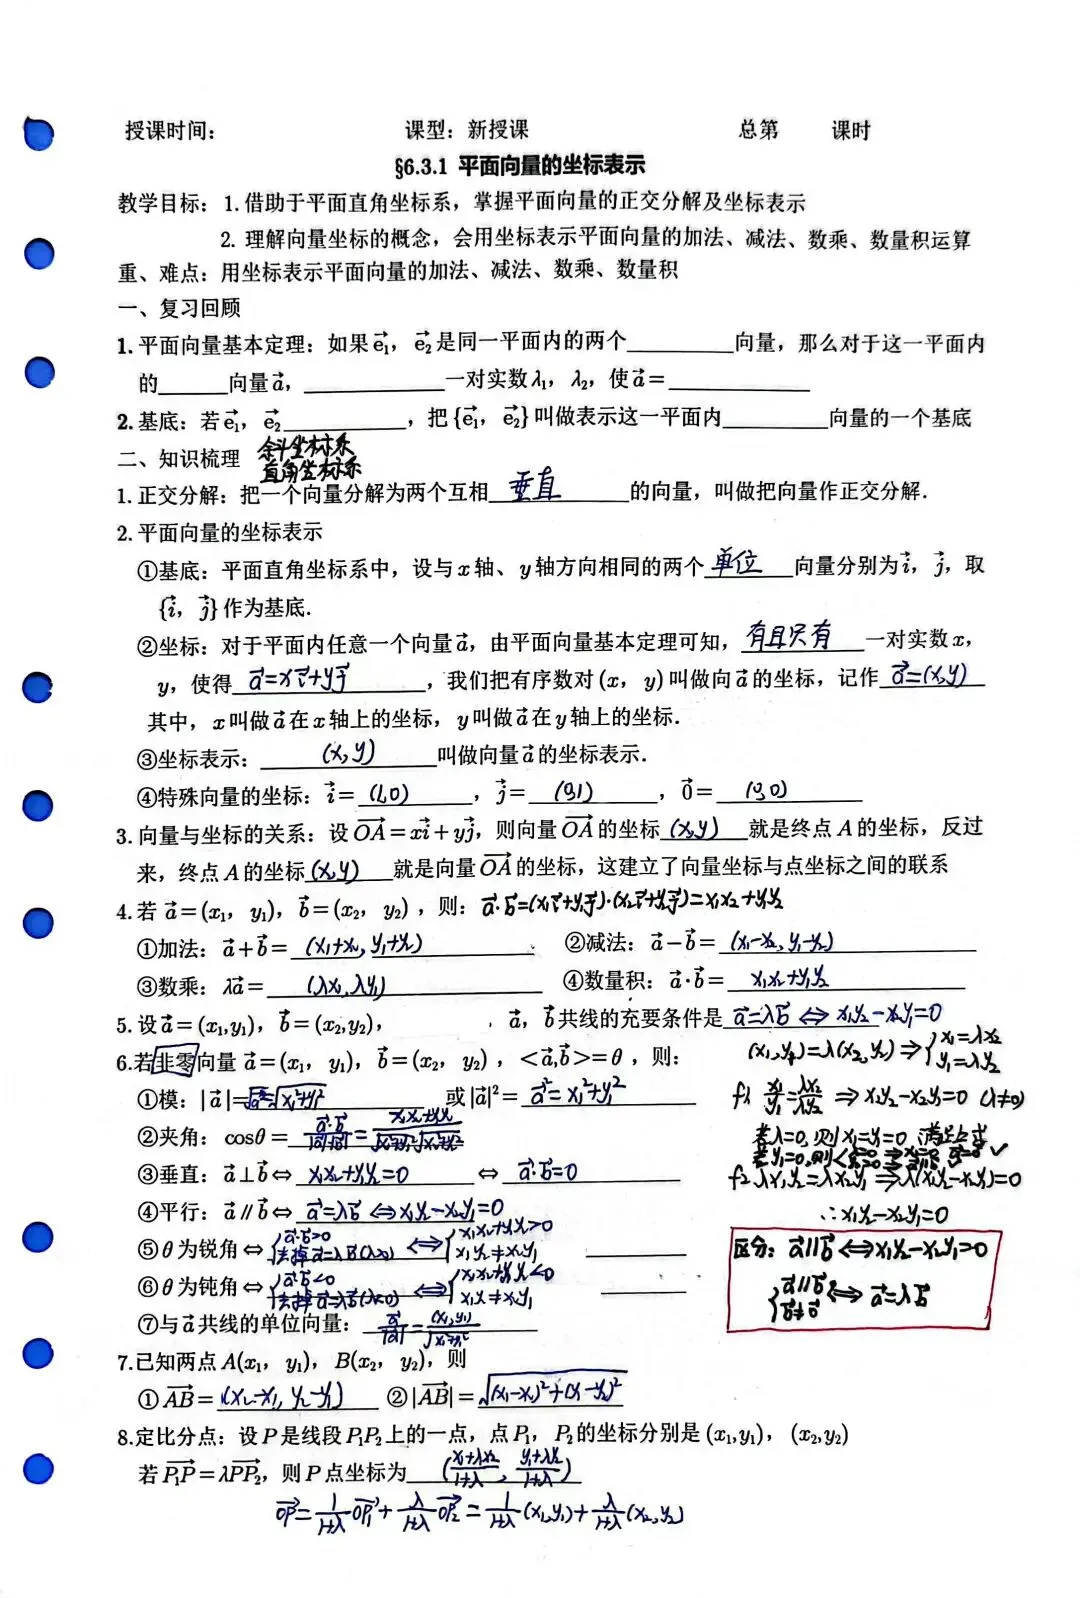 授课时间： 课型：新授课 总第 课时
§6.3.1 平面向量的坐标表示
教学目标：1. 借助于平面直角坐标系，掌握平面向量的正交分解及坐标表示
2. 理解向量坐标的概念，会用坐标表示平面向量的加法、减法、数乘、数量积运算
重、难点：用坐标表示平面向量的加法、减法、数乘、数量积
一、复习回顾
1. 平面向量基本定理：如果e⃗₁，e⃗₂是同一平面内的两个________向量，那么对于这一平面内
的______向量a⃗，____________一对实数λ₁，λ₂，使a⃗=____________
2. 基底：若e⃗₁，e⃗₂__________，把{e⃗₁，e⃗₂}叫做表示这一平面内________向量的一个基底
二、知识梳理 斜坐标系
直角坐标系
1. 正交分解：把一个向量分解为两个互相 垂直 的向量，叫做把向量作正交分解.
2. 平面向量的坐标表示
①基底：平面直角坐标系中，设与x轴、y轴方向相同的两个 单位 向量分别为i⃗，j⃗，取
{i⃗，j⃗}作为基底.
②坐标：对于平面内任意一个向量a⃗，由平面向量基本定理可知， 有且只有 一对实数x，
y，使得 a⃗=xi⃗+yj⃗ ，我们把有序数对(x，y)叫做向a⃗的坐标，记作 a⃗=(x,y)
其中，x叫做a⃗在x轴上的坐标，y叫做a⃗在y轴上的坐标.
③坐标表示： (x,y) 叫做向量a⃗的坐标表示.
④特殊向量的坐标：i⃗= (1,0) ，j⃗= (0,1) ，0⃗= (0,0)
3. 向量与坐标的关系：设OA⃗=xi⃗+yj⃗，则向量OA⃗的坐标 (x,y) 就是终点A的坐标，反过
来，终点A的坐标 (x,y) 就是向量OA⃗的坐标，这建立了向量坐标与点坐标之间的联系
4. 若a⃗=(x₁，y₁)，b⃗=(x₂，y₂)，则：a⃗·b⃗=(x₁i⃗+y₁j⃗)·(x₂i⃗+y₂j⃗)=x₁x₂+y₁y₂
①加法：a⃗+b⃗= (x₁+x₂,y₁+y₂) ②减法：a⃗-b⃗= (x₁-x₂,y₁-y₂)
③数乘：λa⃗= (λx₁,λy₁) ④数量积：a⃗·b⃗= x₁x₂+y₁y₂
5. 设a⃗=(x₁,y₁)，b⃗=(x₂,y₂)， a⃗，b⃗共线的充要条件是 a⃗=λb⃗⇔x₁y₂-x₂y₁=0
(x₁,y₁)=λ(x₂,y₂)⇒{x₁=λx₂
y₁=λy₂
6. 若非零向量a⃗=(x₁，y₁)，b⃗=(x₂，y₂)，<a⃗,b⃗>=θ，则：
①模：|a⃗|=√a⃗²=√(x₁²+y₁²) 或|a⃗|²= a⃗²=x₁²+y₁²
f1 x₁/y₁=λx₂/λy₂⇒x₁y₂-x₂y₁=0 (λ≠0)
②夹角：cosθ= a⃗·b⃗/|a⃗||b⃗|=(x₁x₂+y₁y₂)/(√(x₁²+y₁²)√(x₂²+y₂²))
若λ=0,则x₁=y₁=0,满足上式
③垂直：a⃗⊥b⃗⇔ x₁x₂+y₁y₂=0 ⇔ a⃗·b⃗=0
f2 λx₁y₂=λx₂y₁⇒λ(x₁y₂-x₂y₁)=0
④平行：a⃗∥b⃗⇔ a⃗=λb⃗⇔x₁y₂-x₂y₁=0
∴x₁y₂-x₂y₁=0
⑤θ为锐角⇔{a⃗·b⃗>0
去掉a⃗=λb⃗(λ>0) ⇔{x₁x₂+y₁y₂>0
x₁y₂≠x₂y₁
区分：a⃗∥b⃗⇔x₁y₂-x₂y₁=0
{a⃗∥b⃗
b⃗≠0⃗ ⇔a⃗=λb⃗
⑥θ为钝角⇔{a⃗·b⃗<0
去掉a⃗=λb⃗(λ<0) ⇔{x₁x₂+y₁y₂<0
x₁y₂≠x₂y₁
⑦与a⃗共线的单位向量： a⃗/|a⃗|=(x₁,y₁)/√(x₁²+y₁²)
7. 已知两点A(x₁，y₁)，B(x₂，y₂)，则
①AB⃗= (x₂-x₁,y₂-y₁) ②|AB⃗|=√((x₁-x₂)²+(y₁-y₂)²)
8. 定比分点：设P是线段P₁P₂上的一点，点P₁，P₂的坐标分别是(x₁,y₁)，(x₂,y₂)
若P₁P⃗=λPP₂⃗，则P点坐标为 ((x₁+λx₂)/(1+λ),(y₁+λy₂)/(1+λ))
OP⃗=1/(1+λ)OP₁⃗+λ/(1+λ)OP₂⃗=1/(1+λ)(x₁,y₁)+λ/(1+λ)(x₂,y₂)